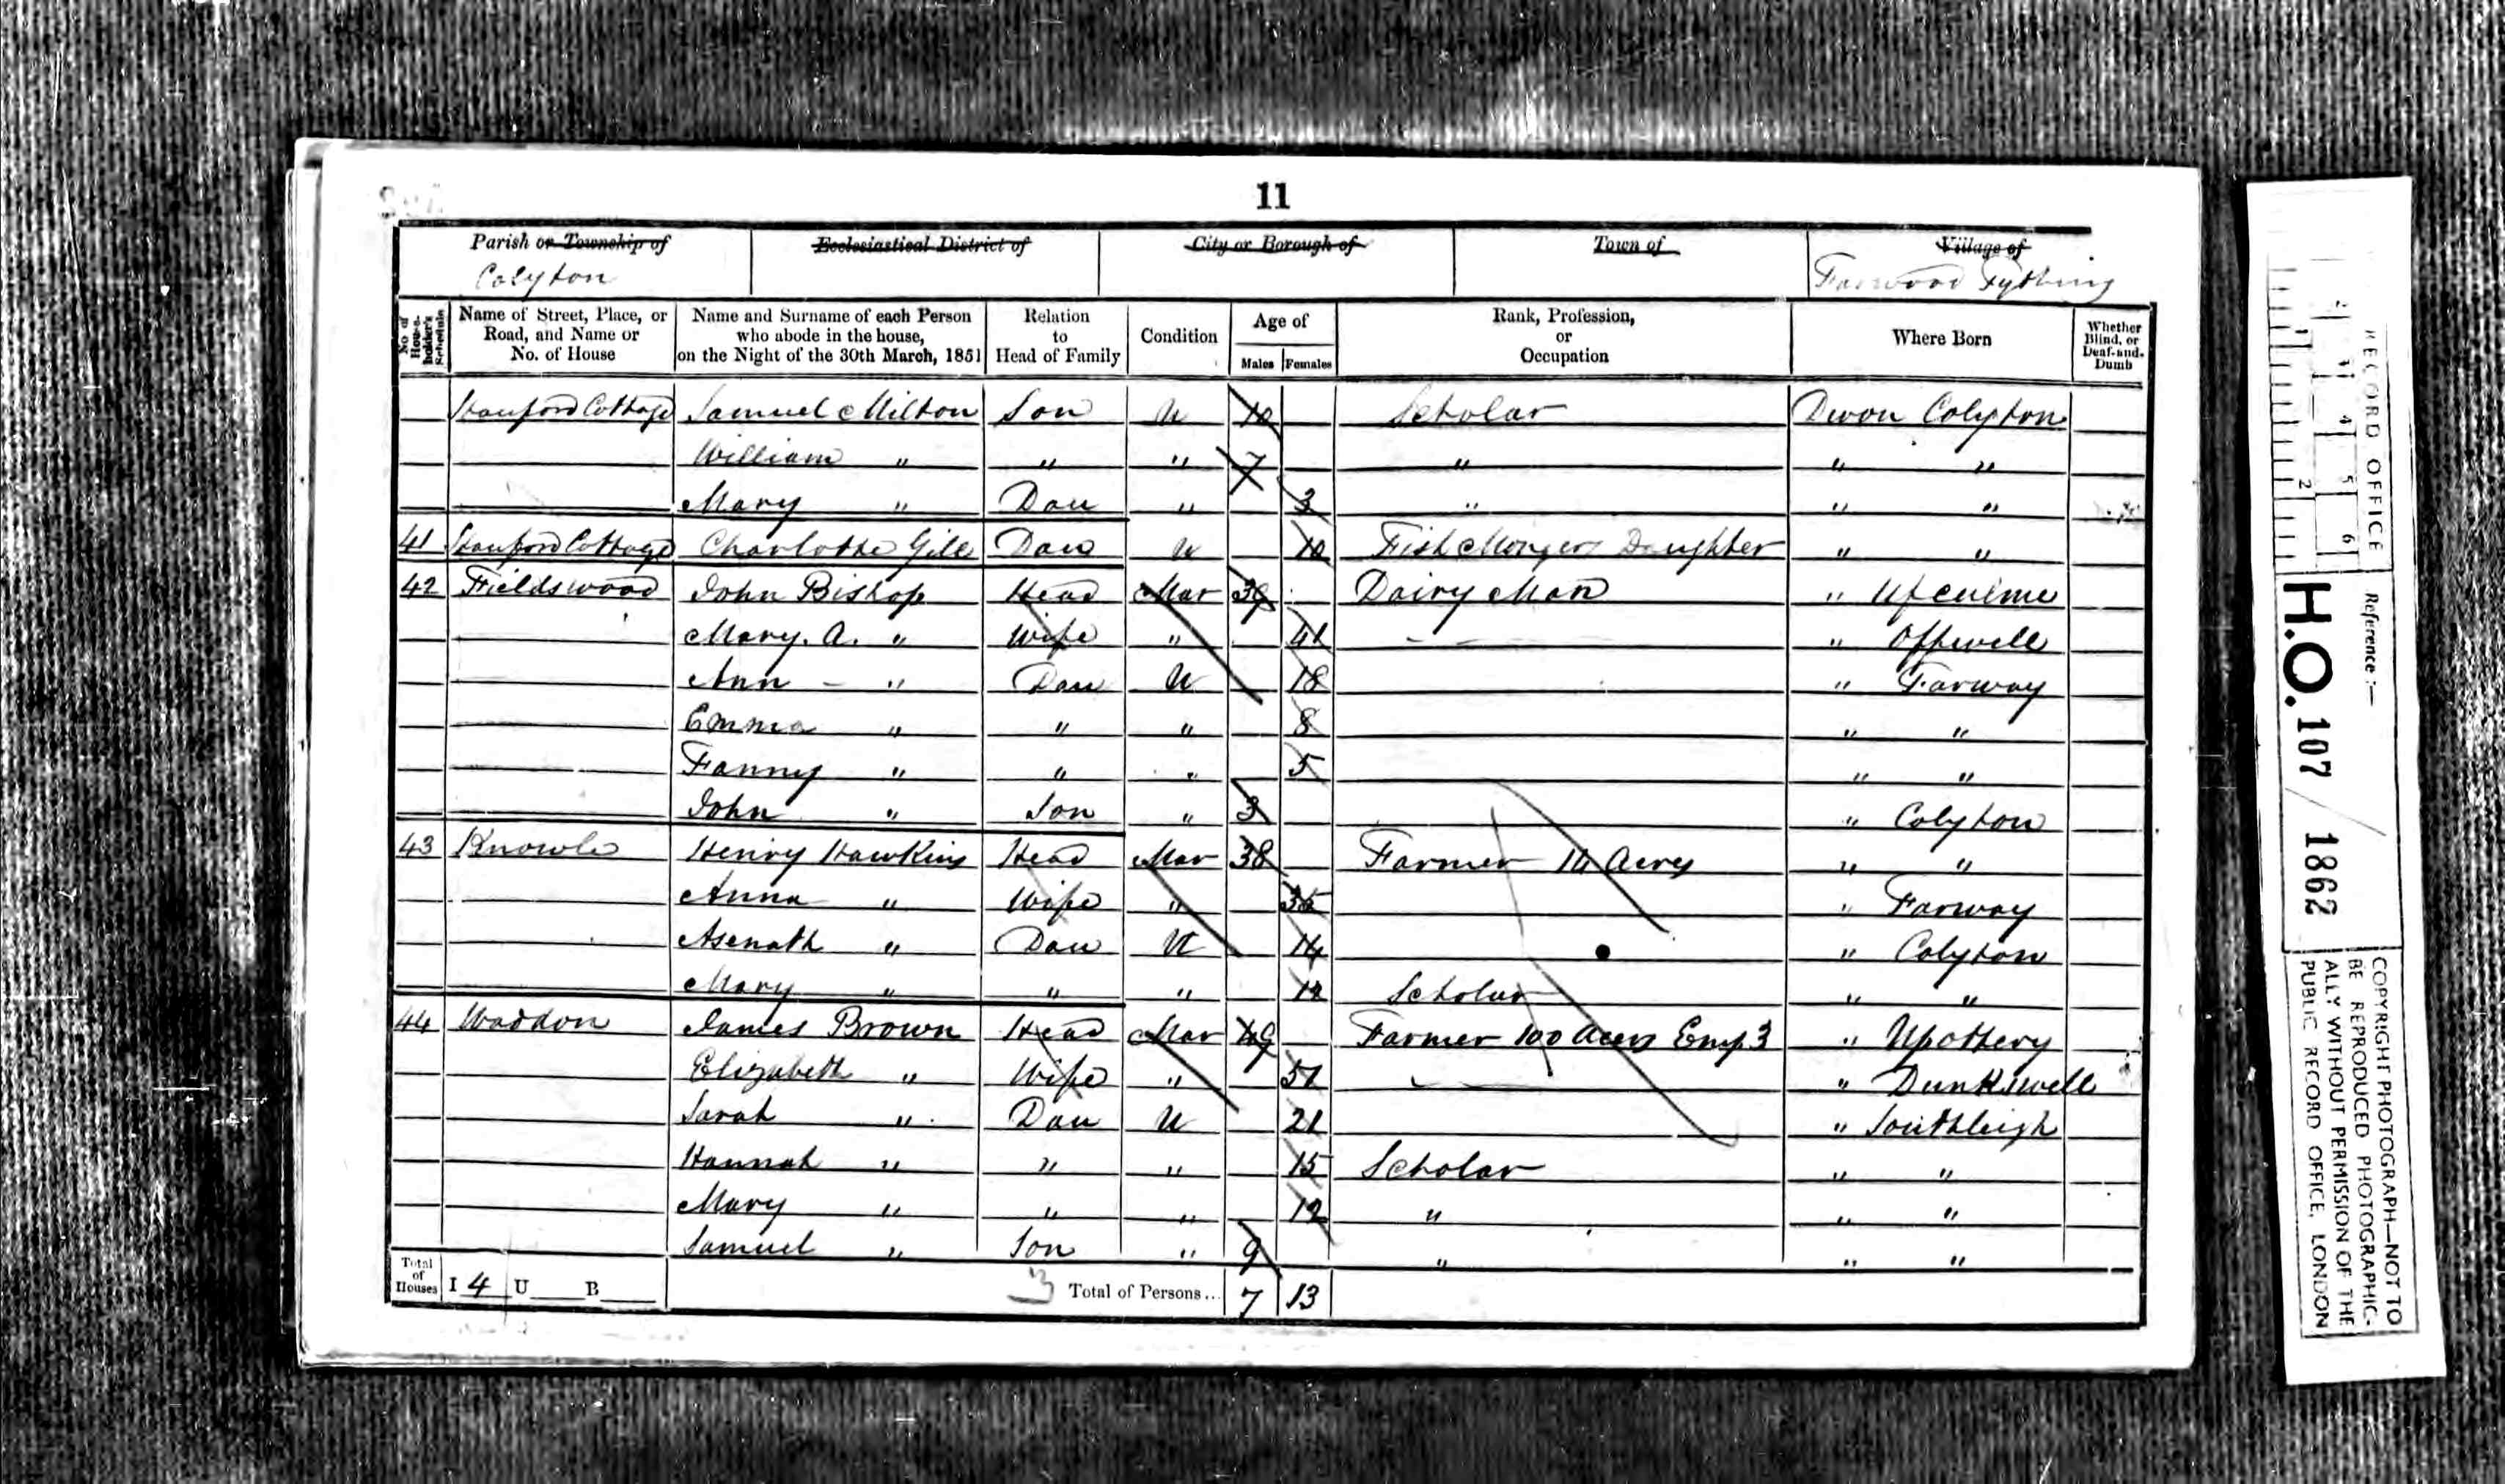 11
Parish or Township of
Colyton
Ecclesiastical District of
City or Borough of
Town of
Village of
Farwood Tything
No. of House-holder's Schedule
Name of Street, Place, or Road, and Name or No. of House
Name and Surname of each Person who abode in the house, on the Night of the 30th March, 1851
Relation to Head of Family
Condition
Age of
Males Females
Rank, Profession, or Occupation
Where Born
Whether Blind, or Deaf-and-Dumb
Stanford Cottage Samuel Milton Son U 10 Scholar Devon Colyton
William " " " 7 " " "
Mary " Dau " 3 " " "
41 Stanford Cottage Charlotte Gill Dau U 10 Fish Mongers Daughter " "
42 Fieldswood John Bishop Head Mar 39 Dairy Man " Ufculme
Mary. A. " Wife " 41 " Offwell
Ann " Dau U 18 " Farway
Emma " " " 8 " "
Fanny " " " 5 " "
John " Son " 3 " Colyton
43 Knowle Henry Hawkins Head Mar 38 Farmer 14 Acres " "
Anna " Wife " 35 " Farway
Asenath " Dau U 14 " Colyton
Mary " " " 12 Scholar " "
44 Waddon James Brown Head Mar 49 Farmer 100 Acers Emp 3 " Upottery
Elizabeth " Wife " 51 " Dunkswell
Sarah " Dau U 21 " Southleigh
Hannah " " " 15 Scholar " "
Mary " " " 12 " " "
Samuel " Son " 9 " " "
Total of Houses I 4 U B 3 Total of Persons... 7 13
RECORD OFFICE
1 2 3 4 5 6
Reference :—
H.O. 107 / 1862
COPYRIGHT PHOTOGRAPH—NOT TO
BE REPRODUCED PHOTOGRAPHIC-
ALLY WITHOUT PERMISSION OF THE
PUBLIC RECORD OFFICE, LONDON